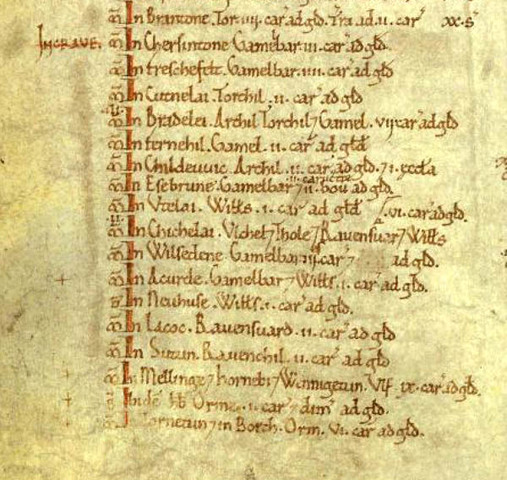 ⱮIn Brantone. Tor. iiii. car' ad gld. Tra ad. ii. car' xx. s'
INCRAVE. M̃ In Chersintone. Gamelbar. iii. car' ad gld.
M̃ In treschefelt. Gamelbar. iiii. car' ad gld
M̃ In Cutnelai. Torchil. ii. car' ad gld
M̃ In Bradelei. Archil Torchil ⁊ Gamel. vii. car' ad gld
M̃ In fernehil. Gamel. ii. car' ad gld
M̃ In Childeuuic. Archil. ii. car' ad gld. ⁊ i. æccła
M̃ In Esebrune. Gamelbar ⁊ ii. bou' ad gld.
M̃ In Vtelai. Wills. i. car' ad gld
M̃ In Chichelai. Vlchel ⁊ Thole ⁊ Rauensuar ⁊ Wills .vi. car' ad gld.
M̃ In Wilsedene. Gamelbar. iii. car' ⁊ ad gld.
M̃ In Acurde. Gamelbar ⁊ Wills. i. car' ad gld.
In Neuhuse. Wills. i. car' ad gld.
M̃ In Lacoc. Rauensuard. ii. car' ad gld
M̃ In Sutun. Rauenchil. ii. car' ad gld
M̃ In Mellinge ⁊ hornebi ⁊ Wennigetun. Vlf. ix. car' ad gld.
Ibidē hb Orme. i. car' ⁊ dim' ad gld.
ornetun ⁊ in Borch. Orm. vi. car' ad gld.